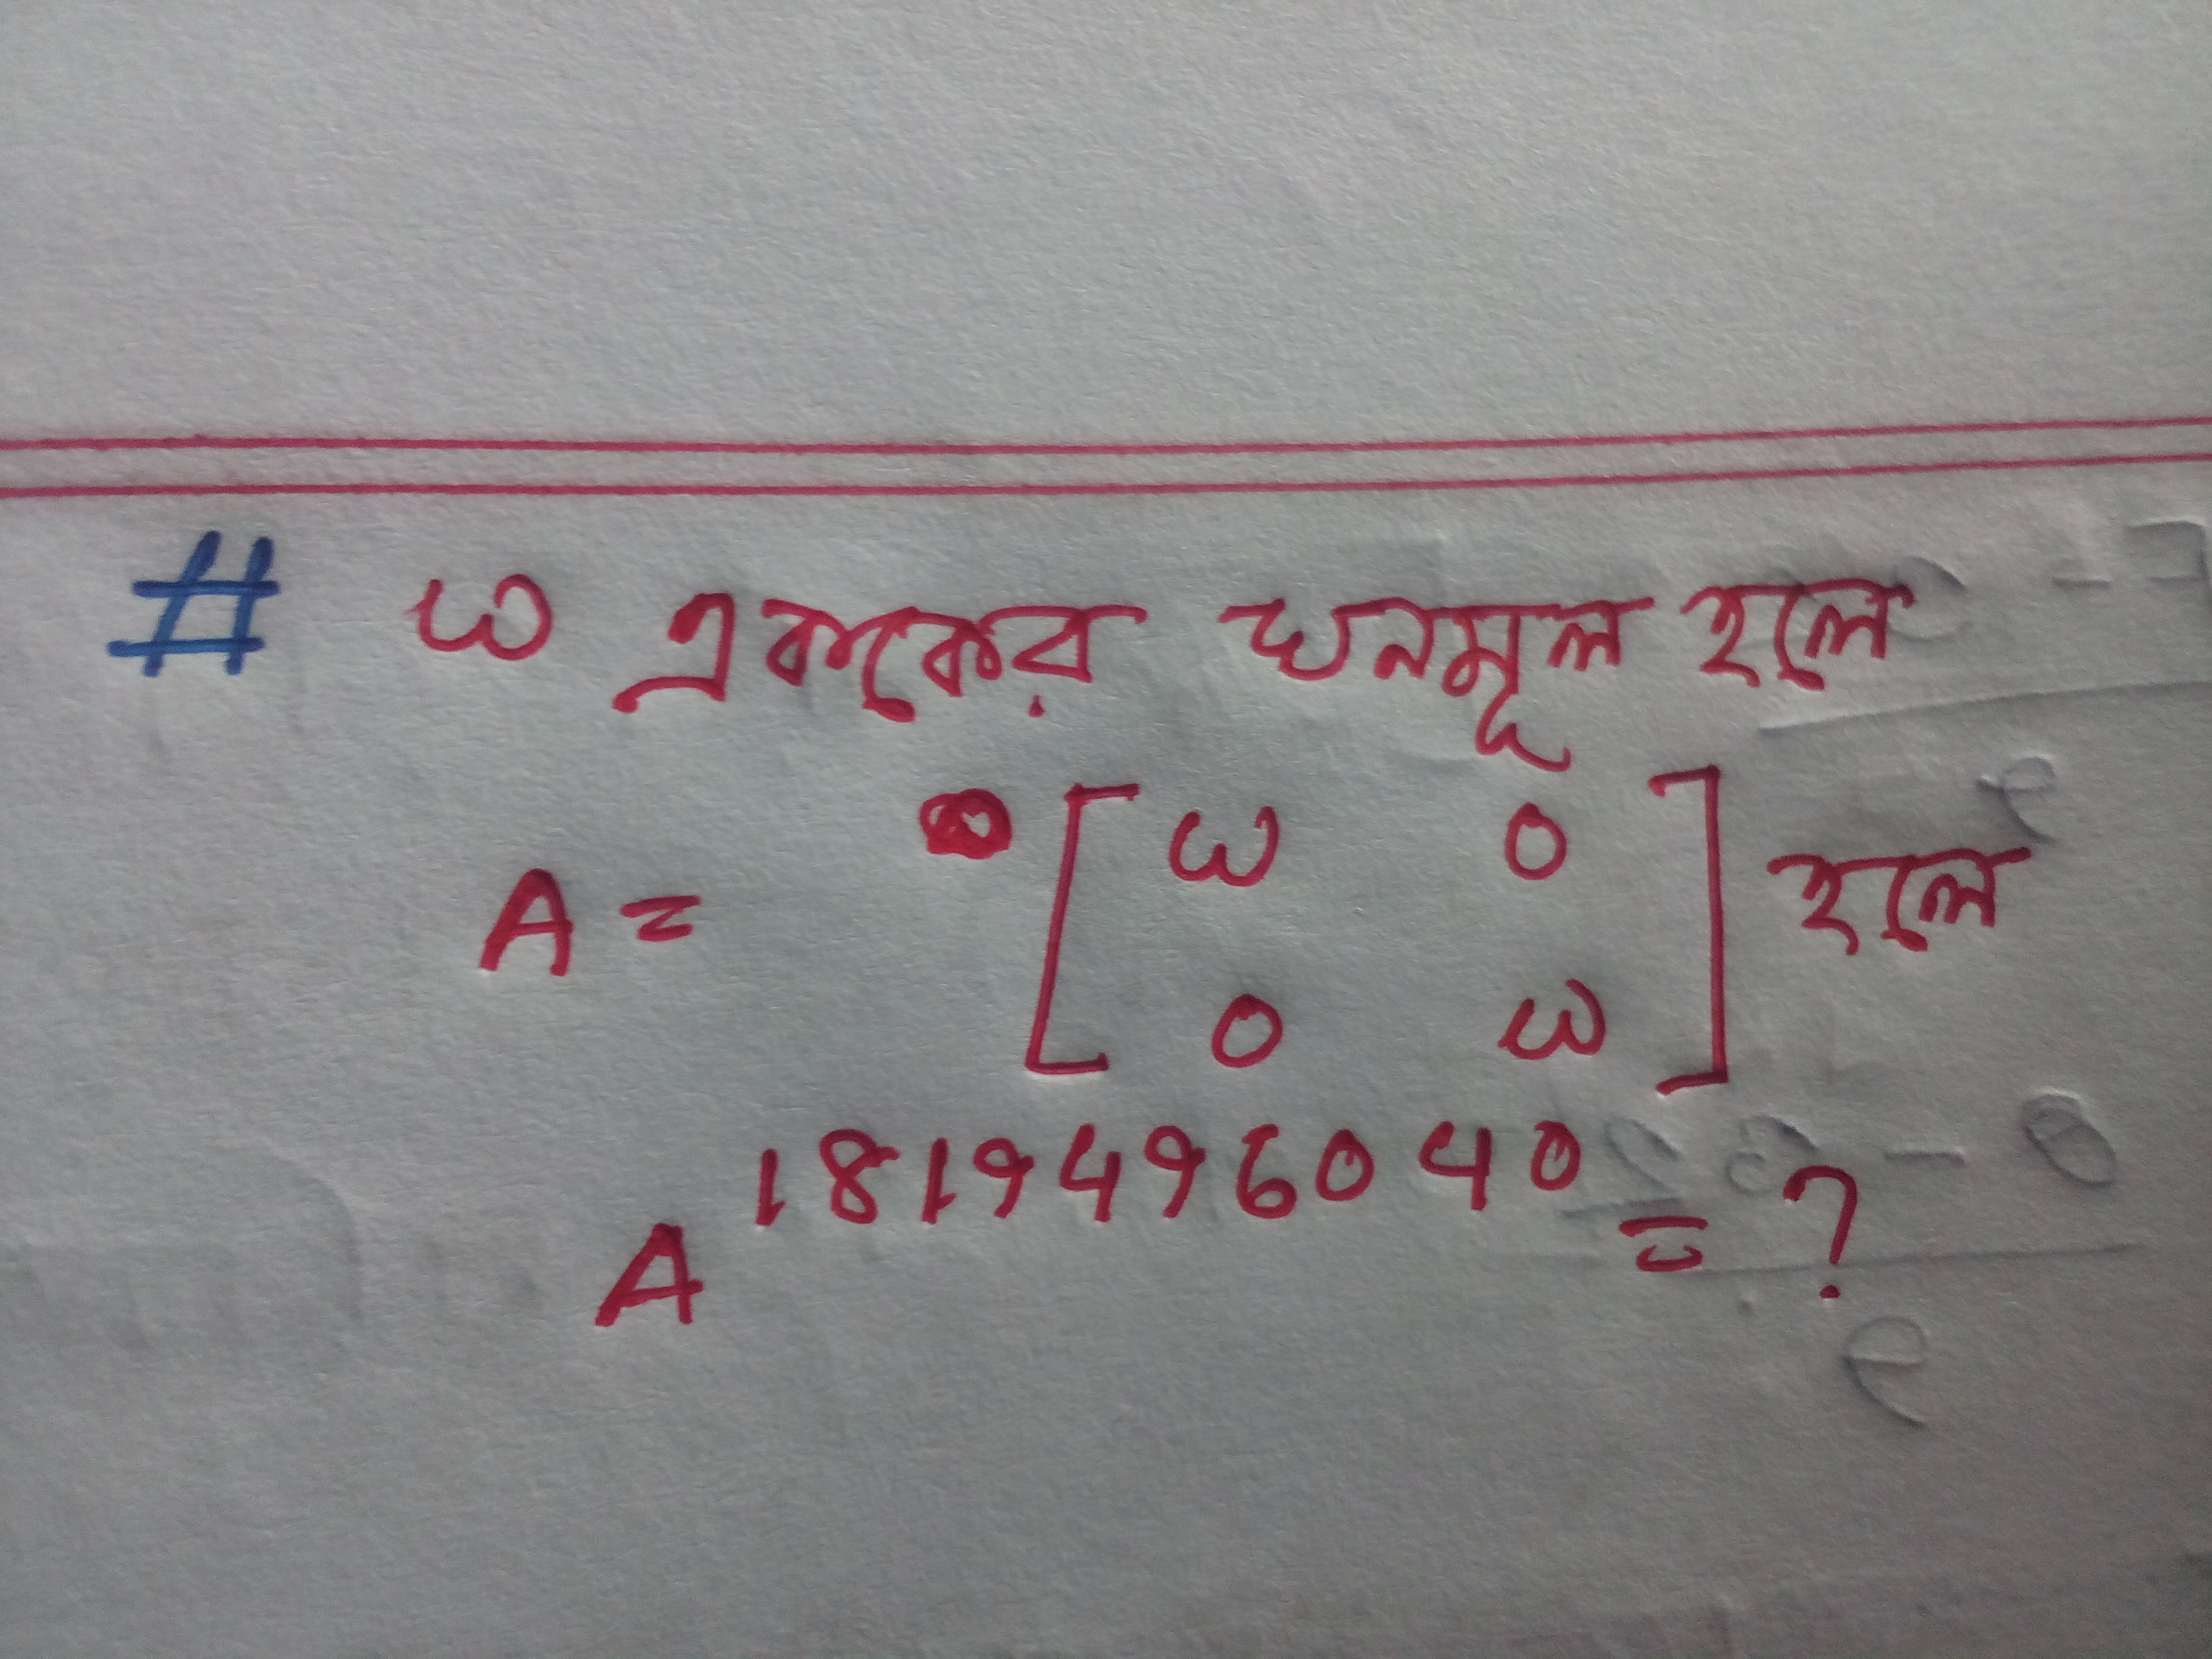 # ω এককের ঘনমূল হলে
A = [ω 0
0 ω] হলে
A^1819496040 = ?